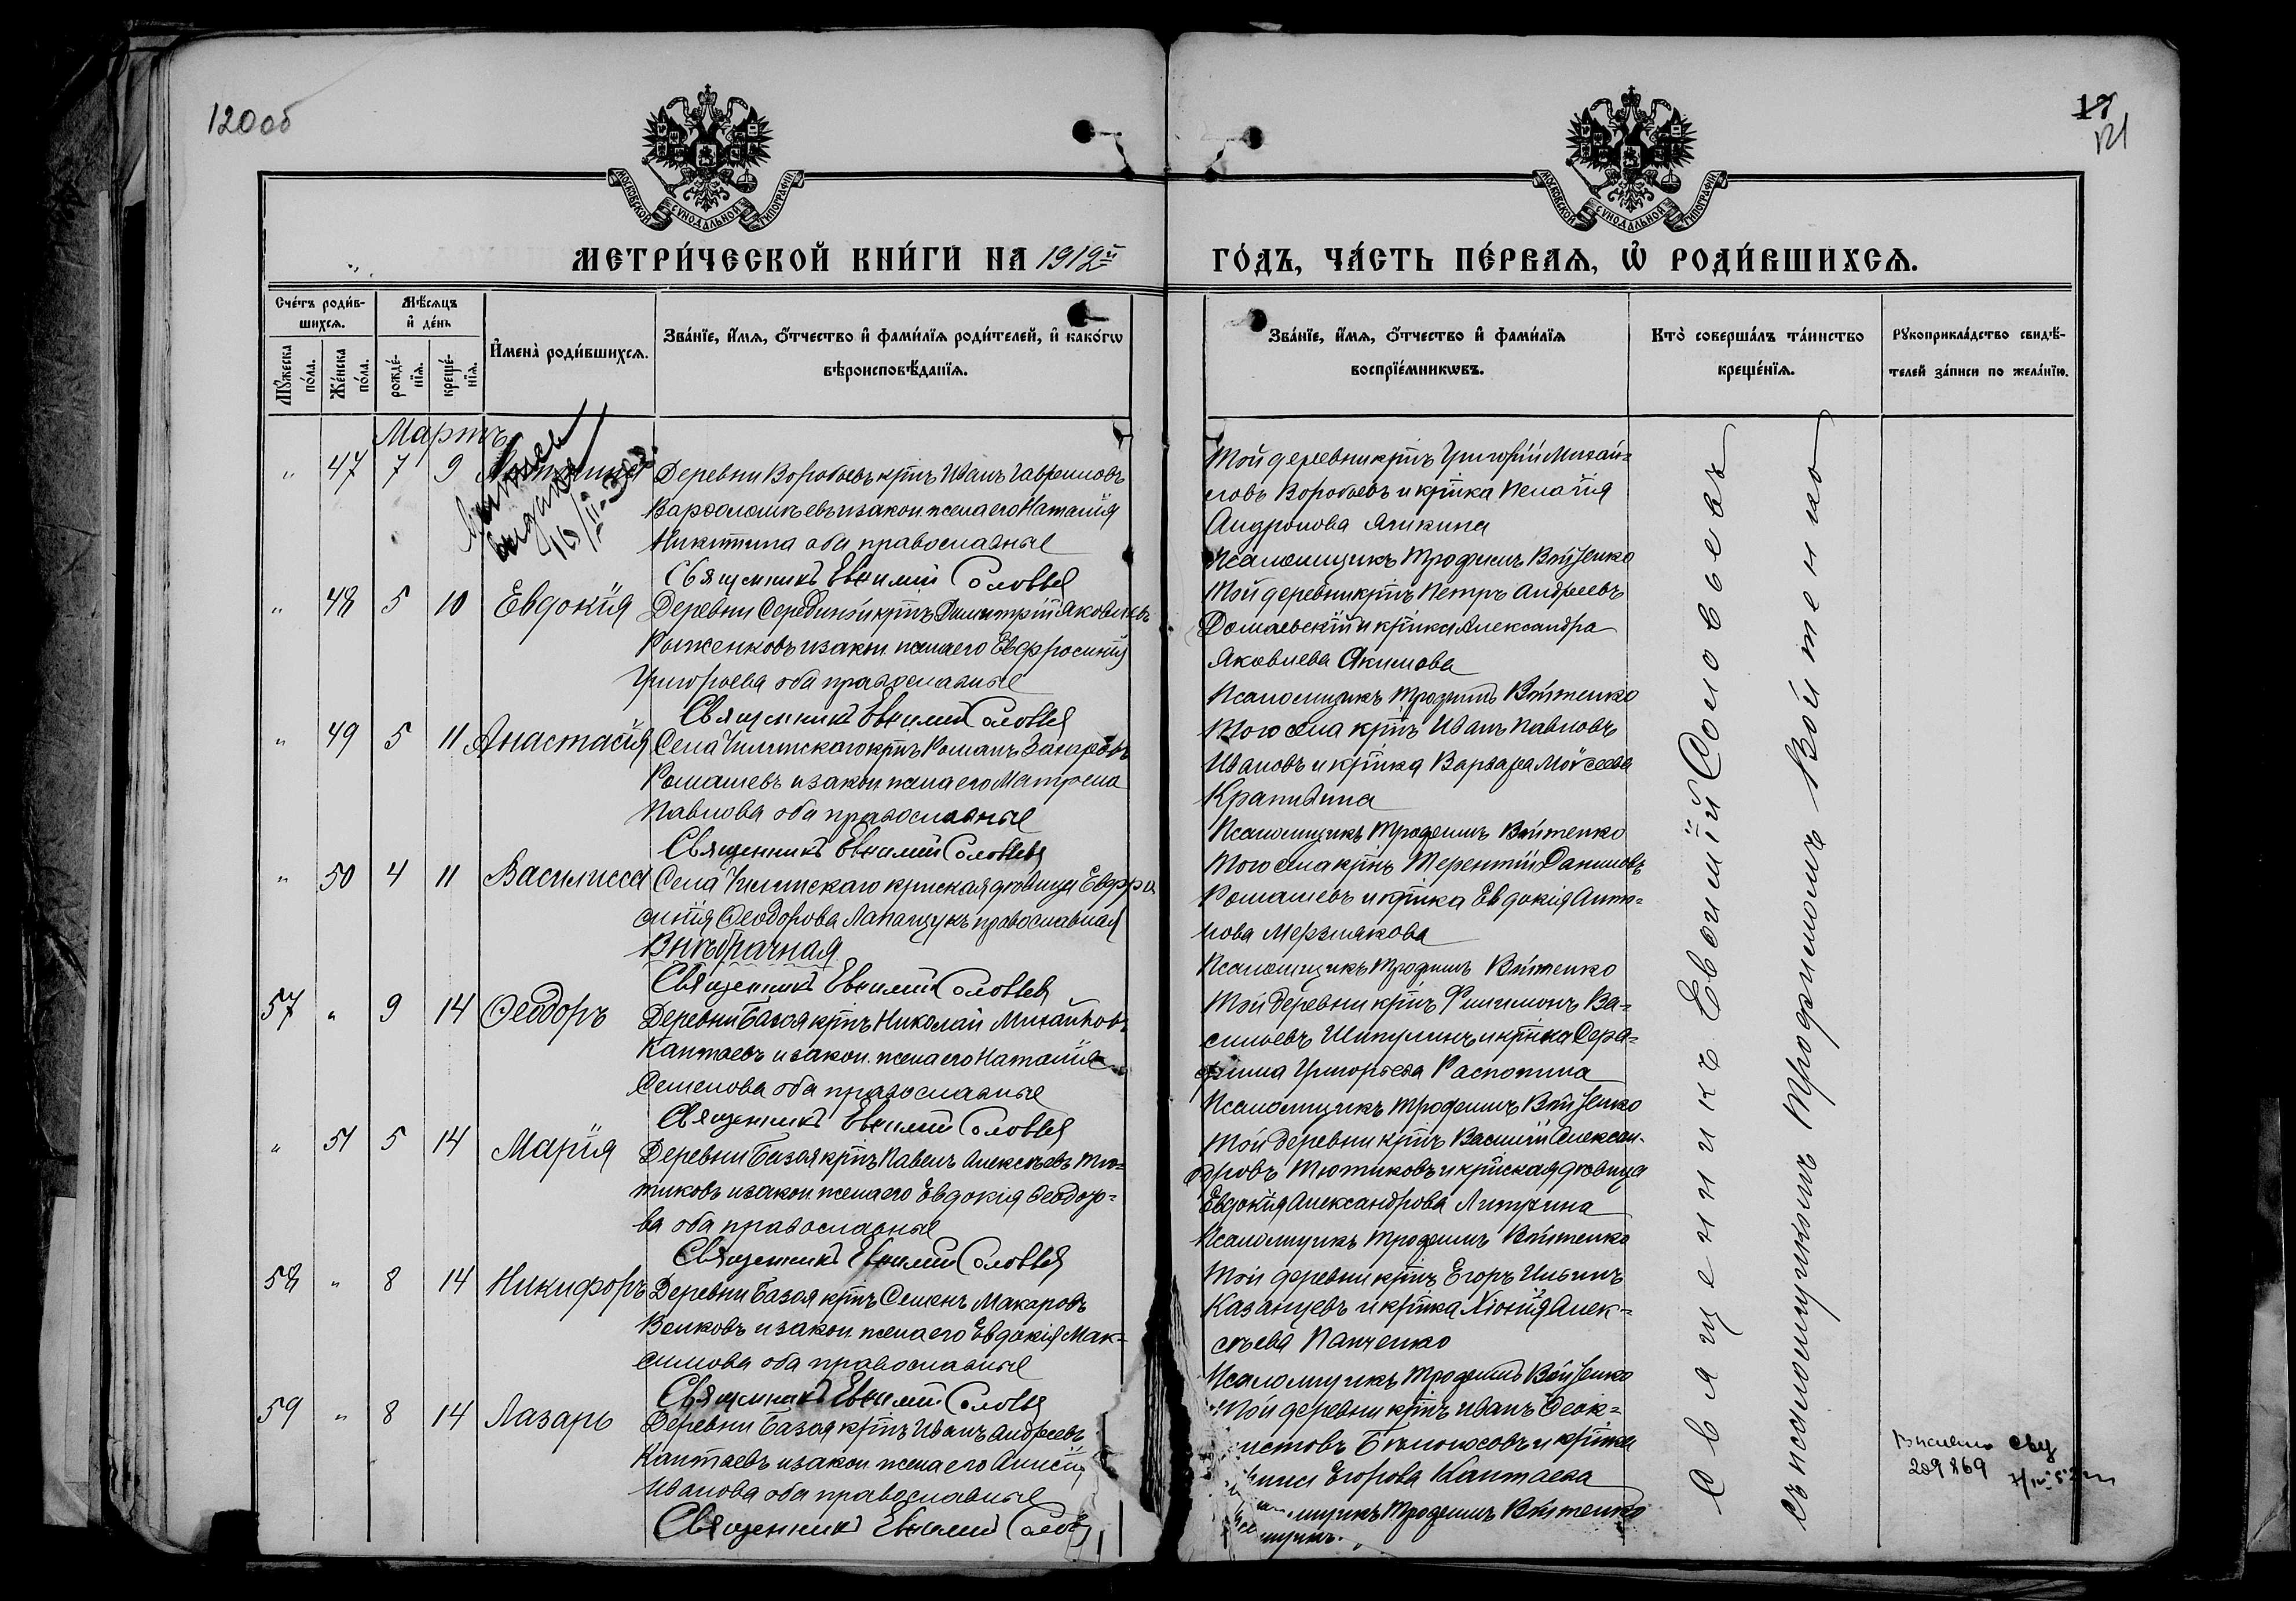 120об
17
121
МОСКОВСКОЙ СѴНОДАЛЬНОЙ ТИПОГРАФІИ
МОСКОВСКОЙ СѴНОДАЛЬНОЙ ТИПОГРАФІИ
МЕТРИ́ЧЕСКОЙ КНИ́ГИ НА 1912й
ГО́ДЪ, ЧА́СТЬ ПЕ́РВАѦ, Ѡ҆ РОДИ́ВШИХСѦ.
Сче́тъ роди́в-
шихсѧ.
Мꙋ́жеска по́ла.
Же́нска по́ла.
Мѣ́сѧцъ
и҆ де́нь
рожде́-
нїѧ.
креще́-
нїѧ.
И҆мена̀ роди́вшихсѧ.
Зва́нїе, и҆́мѧ, ѻ҆́тчество и҆ фами́лїѧ роди́телей, и҆ како́гѡ
вѣроисповѣ́данїѧ.
Зва́нїе, и҆́мѧ, ѻ҆́тчество и҆ фами́лїѧ
воспрїе́мникѡвъ.
Кто̀ соверша́лъ та́инство
креще́нїѧ.
Рꙋкоприкла́дство свидѣ́-
телей за́писи по жела́нїю.
Мартъ
" 47 7 9
выдана
16/II-30
Деревни Воробьевъ крнъ Иванъ Гавриловъ
Варѳоломѣевъ и закон. жена его Наталія
Никитина оба православные
Священникъ Евѳимій Соловьев
Той деревни крнъ Григорій Михай-
ловъ Воробьевъ и крнка Пелагія
Андронова Аникина
Псаломщикъ Трофимъ Войтенко
" 48 5 10 Евдокія
Деревни Серединой крнъ Димитрій Яковлевъ
Рыженковъ и закон. жена его Евфросинія
Григорьева оба православные
Священникъ Евѳимій Соловьев
Той деревни крнъ Петръ Андреевъ
Домаевскій и крнка Александра
Яковлева Акимова
Псаломщикъ Трофимъ Войтенко
" 49 5 11 Анастасія
Села Чилинскаго крнъ Романъ Захаровъ
Ромашевъ и закон. жена его Матрена
Павлова оба православные
Священникъ Евѳимій Соловьев
Того села крнъ Иванъ Павловъ
Ивановъ и крнка Варвара Моѵсеева
Крапивина
Псаломщикъ Трофимъ Войтенко
" 50 4 11 Василисса
Села Чилинскаго крнская дѣвица Евфро
синія Ѳеодорова Лапащукъ православная
Внѣбрачная
Священникъ Евѳимій Соловьев
Того села крнъ Терентій Даниловъ
Ромашевъ и крнка Евдокія Анто-
нова Мерзлякова
Псаломщикъ Трофимъ Войтенко
57 " 9 14 Ѳеодоръ
Деревни Базоя крнъ Николай Михайловъ
Каптаевъ и закон. жена его Наталія
Семенова оба православные
Священникъ Евѳимій Соловьев
Той деревни крнъ Филимонъ Ва-
сильевъ Шипулинъ и крнка Сера-
фима Григорьева Распопина
Псаломщикъ Трофимъ Войтенко
" 51 5 14 Марія
Деревни Базоя крнъ Павелъ Алексѣевъ Тю-
тиковъ и закон жена его Евдокія Ѳеодоро-
ва оба православные
Священникъ Евѳимій Соловьев
Той деревни крнъ Василій Алексан-
дровъ Тютиковъ и крнская дѣвица
Евдокія Александрова Липухина
Псаломщикъ Трофимъ Войтенко
58 " 8 14 Никифоръ
Деревни Базоя крнъ Семенъ Макаровъ
Волковъ и закон. жена его Евдокія Мак-
симова оба православные
Священникъ Евѳимій Соловьев
Той деревни крнъ Егоръ Ильинъ
Казанцевъ и крнка Хіонія Алек-
сѣева Панченко
Псаломщикъ Трофимъ Войтенко
59 " 8 14 Лазарь
Деревни Базоя крнъ Иванъ Андреевъ
Каптаевъ и закон жена его Анисія
Иванова оба православные
Священникъ Евѳимій Солов
Той деревни крнъ Иванъ Ѳеок-
тистовъ Бѣлоусовъ и крнка
Егорова Каптаева
Трофимъ Войтенко
Священникъ Евѳимій Соловьевъ
съ псаломщикомъ Трофимомъ Войтенко
209869